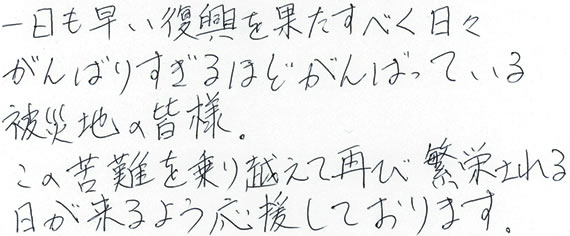 一日も早い復興を果たすべく日々
がんばりすぎるほどがんばっている
被災地の皆様。
この苦難を乗り越えて再び繁栄される
日が来るよう応援しております。